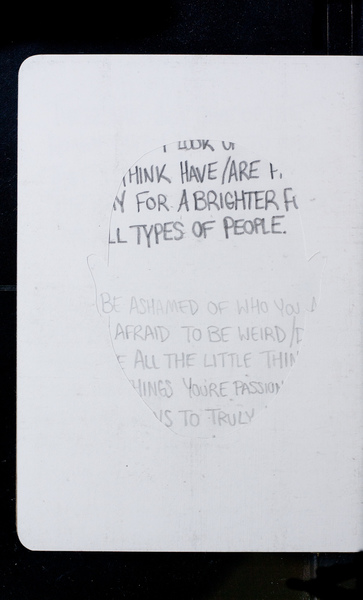 I LOOK
THINK HAVE/ARE
FOR A BRIGHTER
ALL TYPES OF PEOPLE.
BE ASHAMED OF WHO YOU
AFRAID TO BE WEIRD/
ALL THE LITTLE THIN
THINGS YOU'RE PASSION
US TO TRULY